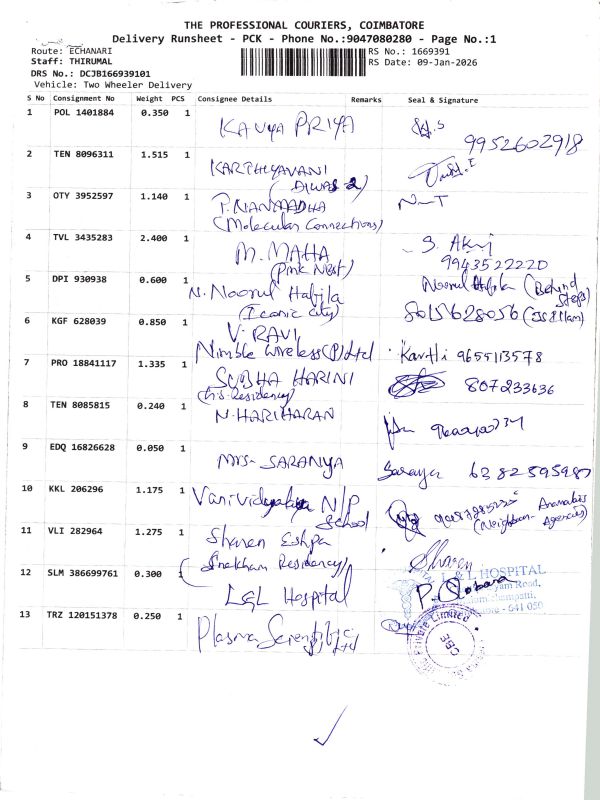 THE PROFESSIONAL COURIERS, COIMBATORE
Delivery Runsheet - PCK - Phone No.:9047080280 - Page No.:1
Route: ECHANARI
RS No.: 1669391
Staff: THIRUMAL
RS Date: 09-Jan-2026
DRS No.: DCJB166939101
Vehicle: Two Wheeler Delivery
S No Consignment No Weight PCS Consignee Details Remarks Seal & Signature
1 POL 1401884 0.350 1 KAVYA PRIYA
9952602918
2 TEN 8096311 1.515 1 KARTHYAVANI
(DIWAS-2)
3 OTY 3952597 1.140 1 P. NANMADHA N-T
(Molecular Connections)
4 TVL 3435283 2.400 1 M. MAHA S.
(Pink Nest) 9943522220
5 DPI 930938 0.600 1 N. Noorul Habila Noorul (Behind Steps)
(Iconic city) 8015628056
6 KGF 628039 0.850 1 V. RAVI
Nimble Wireless (P) Ltd Karthi 9655113578
7 PRO 18841117 1.335 1 SUBHA HARINI 807233636
(h.s. Residency)
8 TEN 8085815 0.240 1 N. HARIHARAN
9 EDQ 16826628 0.050 1 Mrs. SARANYA Saranya 6382595987
10 KKL 206296 1.175 1 Vanividyalaya N/P
School (Neighbour Agencies)
11 VLI 282964 1.275 1 Sharen Eshpa
Sharen
(Shekham Residency)
12 SLM 386699761 0.300 1 L&L Hospital
L & L HOSPITAL
Road,
- 641 050
13 TRZ 120151378 0.250 1 Plasma Scientific
P. Ltd
Private Limited
CBE